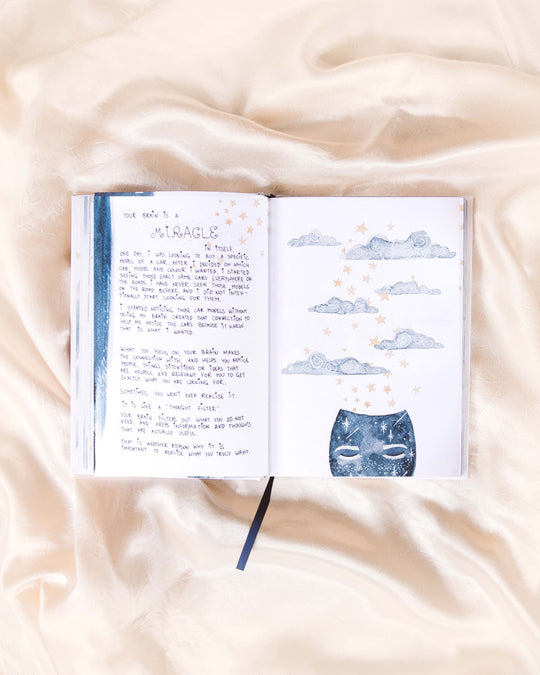 YOUR BRAIN IS A
MIRACLE
IN ITSELF.
ONE DAY I WAS LOOKING TO BUY A SPECIFIC
MODEL OF A CAR. AFTER I DECIDED ON WHICH
CAR MODEL AND COLOUR I WANTED, I STARTED
SEEING THOSE EXACT SAME CARS EVERYWHERE ON
THE ROADS. I HAVE NEVER SEEN THOSE MODELS
ON THE ROAD BEFORE, AND I DID NOT INTEN-
TIONALLY START LOOKING FOR THEM.
I STARTED NOTICING THOSE CAR MODELS WITHOUT
TRYING. MY BRAIN CREATED THAT CONNECTION TO
HELP ME NOTICE THE CARS BECAUSE IT KNEW
THAT IS WHAT I WANTED.
WHAT YOU FOCUS ON, YOUR BRAIN MAKES
THE CONNECTION WITH, AND HELPS YOU NOTICE
PEOPLE, THINGS, SITUATIONS OR IDEAS THAT
ARE HELPFUL AND RELEVANT FOR YOU TO GET
EXACTLY WHAT YOU ARE LOOKING FOR.
SOMETIMES, YOU WON'T EVEN REALISE IT.
IT IS LIKE A "THOUGHT FILTER".
YOUR BRAIN FILTERS OUT WHAT YOU DO NOT
NEED, AND KEEPS INFORMATION AND THOUGHTS
THAT ARE ACTUALLY USEFUL.
THAT IS ANOTHER REASON WHY IT IS
IMPORTANT TO REALISE WHAT YOU TRULY WANT.